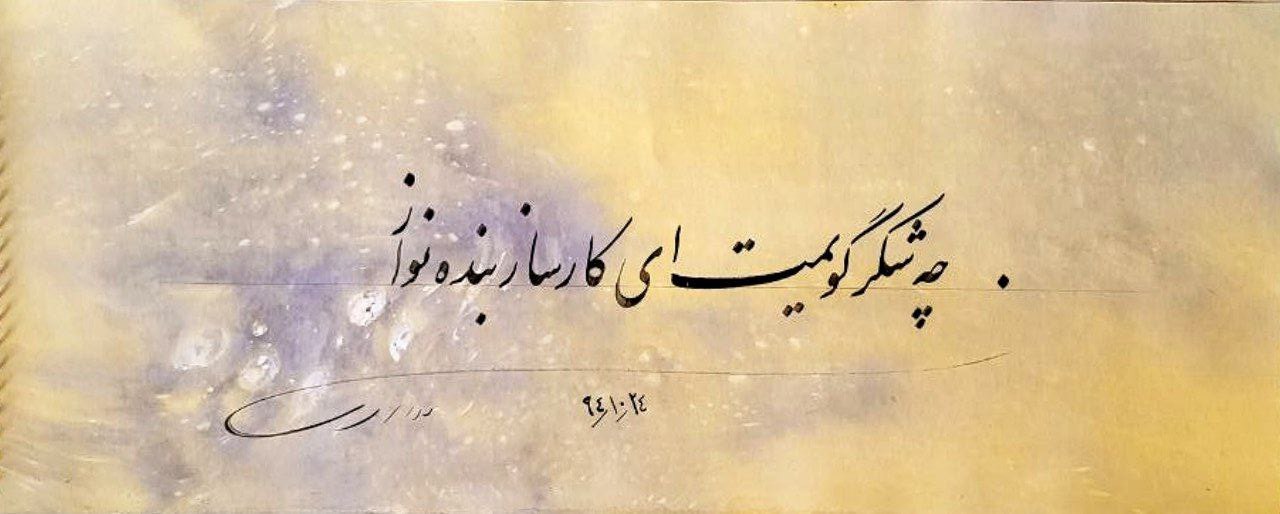 چه شکر گویمت ای کارساز بنده نواز
۹۴٫۱۰٫۲۴